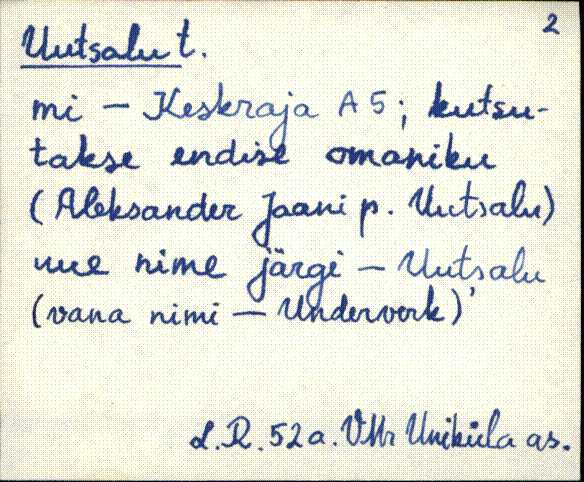 2
Uutsalu t.
mi – Keskraja A 5; kutsu-
takse endise omaniku
(Aleksander Jaani p. Uutsalu)
uue nime järgi – Uutsalu
(vana nimi – Underverk)'
L.R. 52a. VMr Uniküla as.